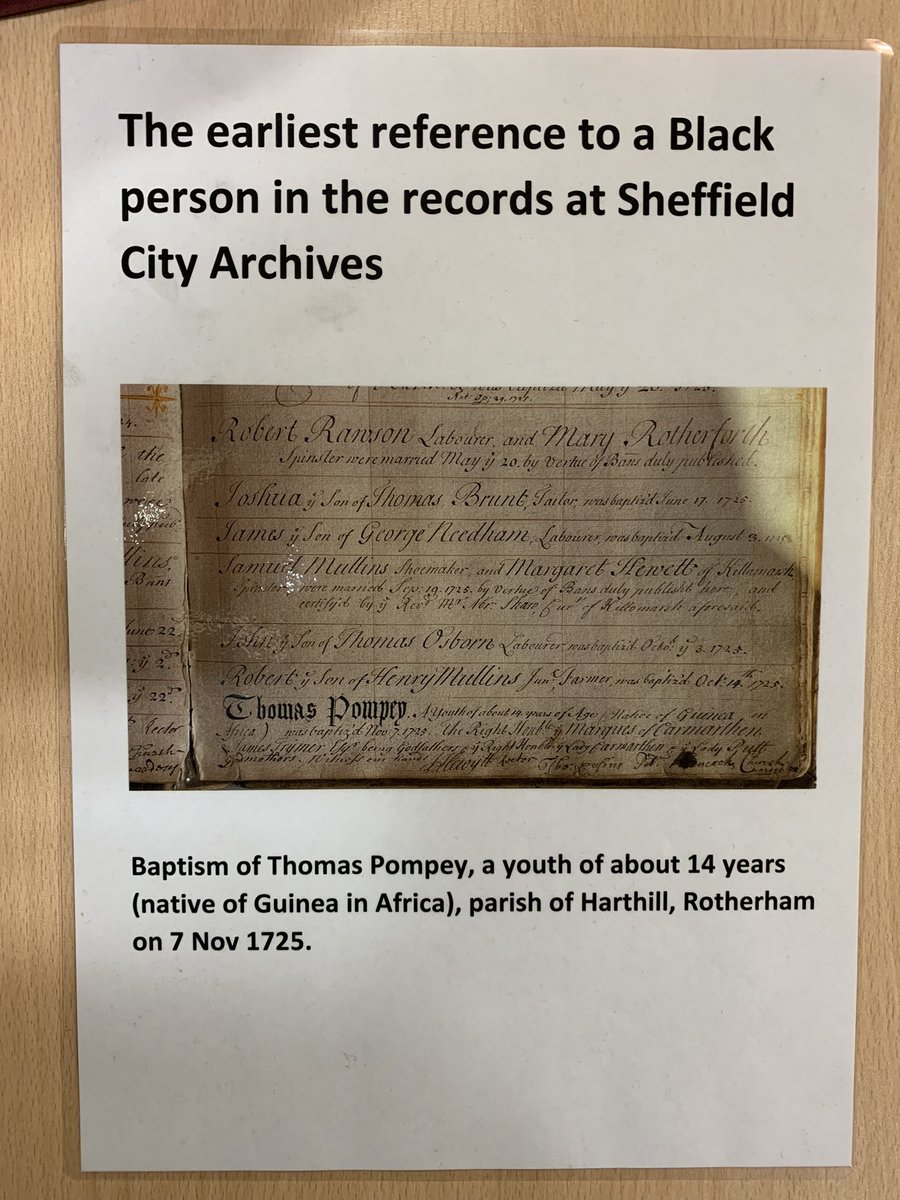 The earliest reference to a Black
person in the records at Sheffield
City Archives
May ẏ 20. 1725.
Robert Rawson Labourer, and Mary Rotherforth
Spinster were married May ẏ 20. by Vertue of Bans duly publish'd.
Joshua ẏ Son of Thomas Brunt, Tailor, was baptiz'd June 17. 1725.
James ẏ Son of George Needham, Labourer, was baptiz'd August 3. 1725
Samuel Mullins Shoemaker, and Margaret Hewett of Killamarsh
Spinster were married Sep. 19. 1725. by vertue of Bans duly publish'd here, and
certify'd by ẏ Revd. Mr. Shaw Cur. of Killamarsh aforesaid.
John ẏ Son of Thomas Osborn Labourer, was baptiz'd Octo. ẏ 3. 1725.
Robert ẏ Son of Henry Mullins Junr. Farmer, was baptiz'd Oct. 14th. 1725.
Thomas Pompey. A Youth of about 14 years of Age (Native of Guinea in
Africa) was baptiz'd Nov. 7. 1725. the Right Honble ẏ Marques of Carmarthen
James Esqr. being Godfathers ẏ Right Honble ẏ Lady Carmarthen & ẏ Lady
Godmothers. Witness our hands Rector Tho:
the
late
were
Bans
June 22d.
ẏ 2d.
ẏ 22d.
Rector
Baptism of Thomas Pompey, a youth of about 14 years
(native of Guinea in Africa), parish of Harthill, Rotherham
on 7 Nov 1725.